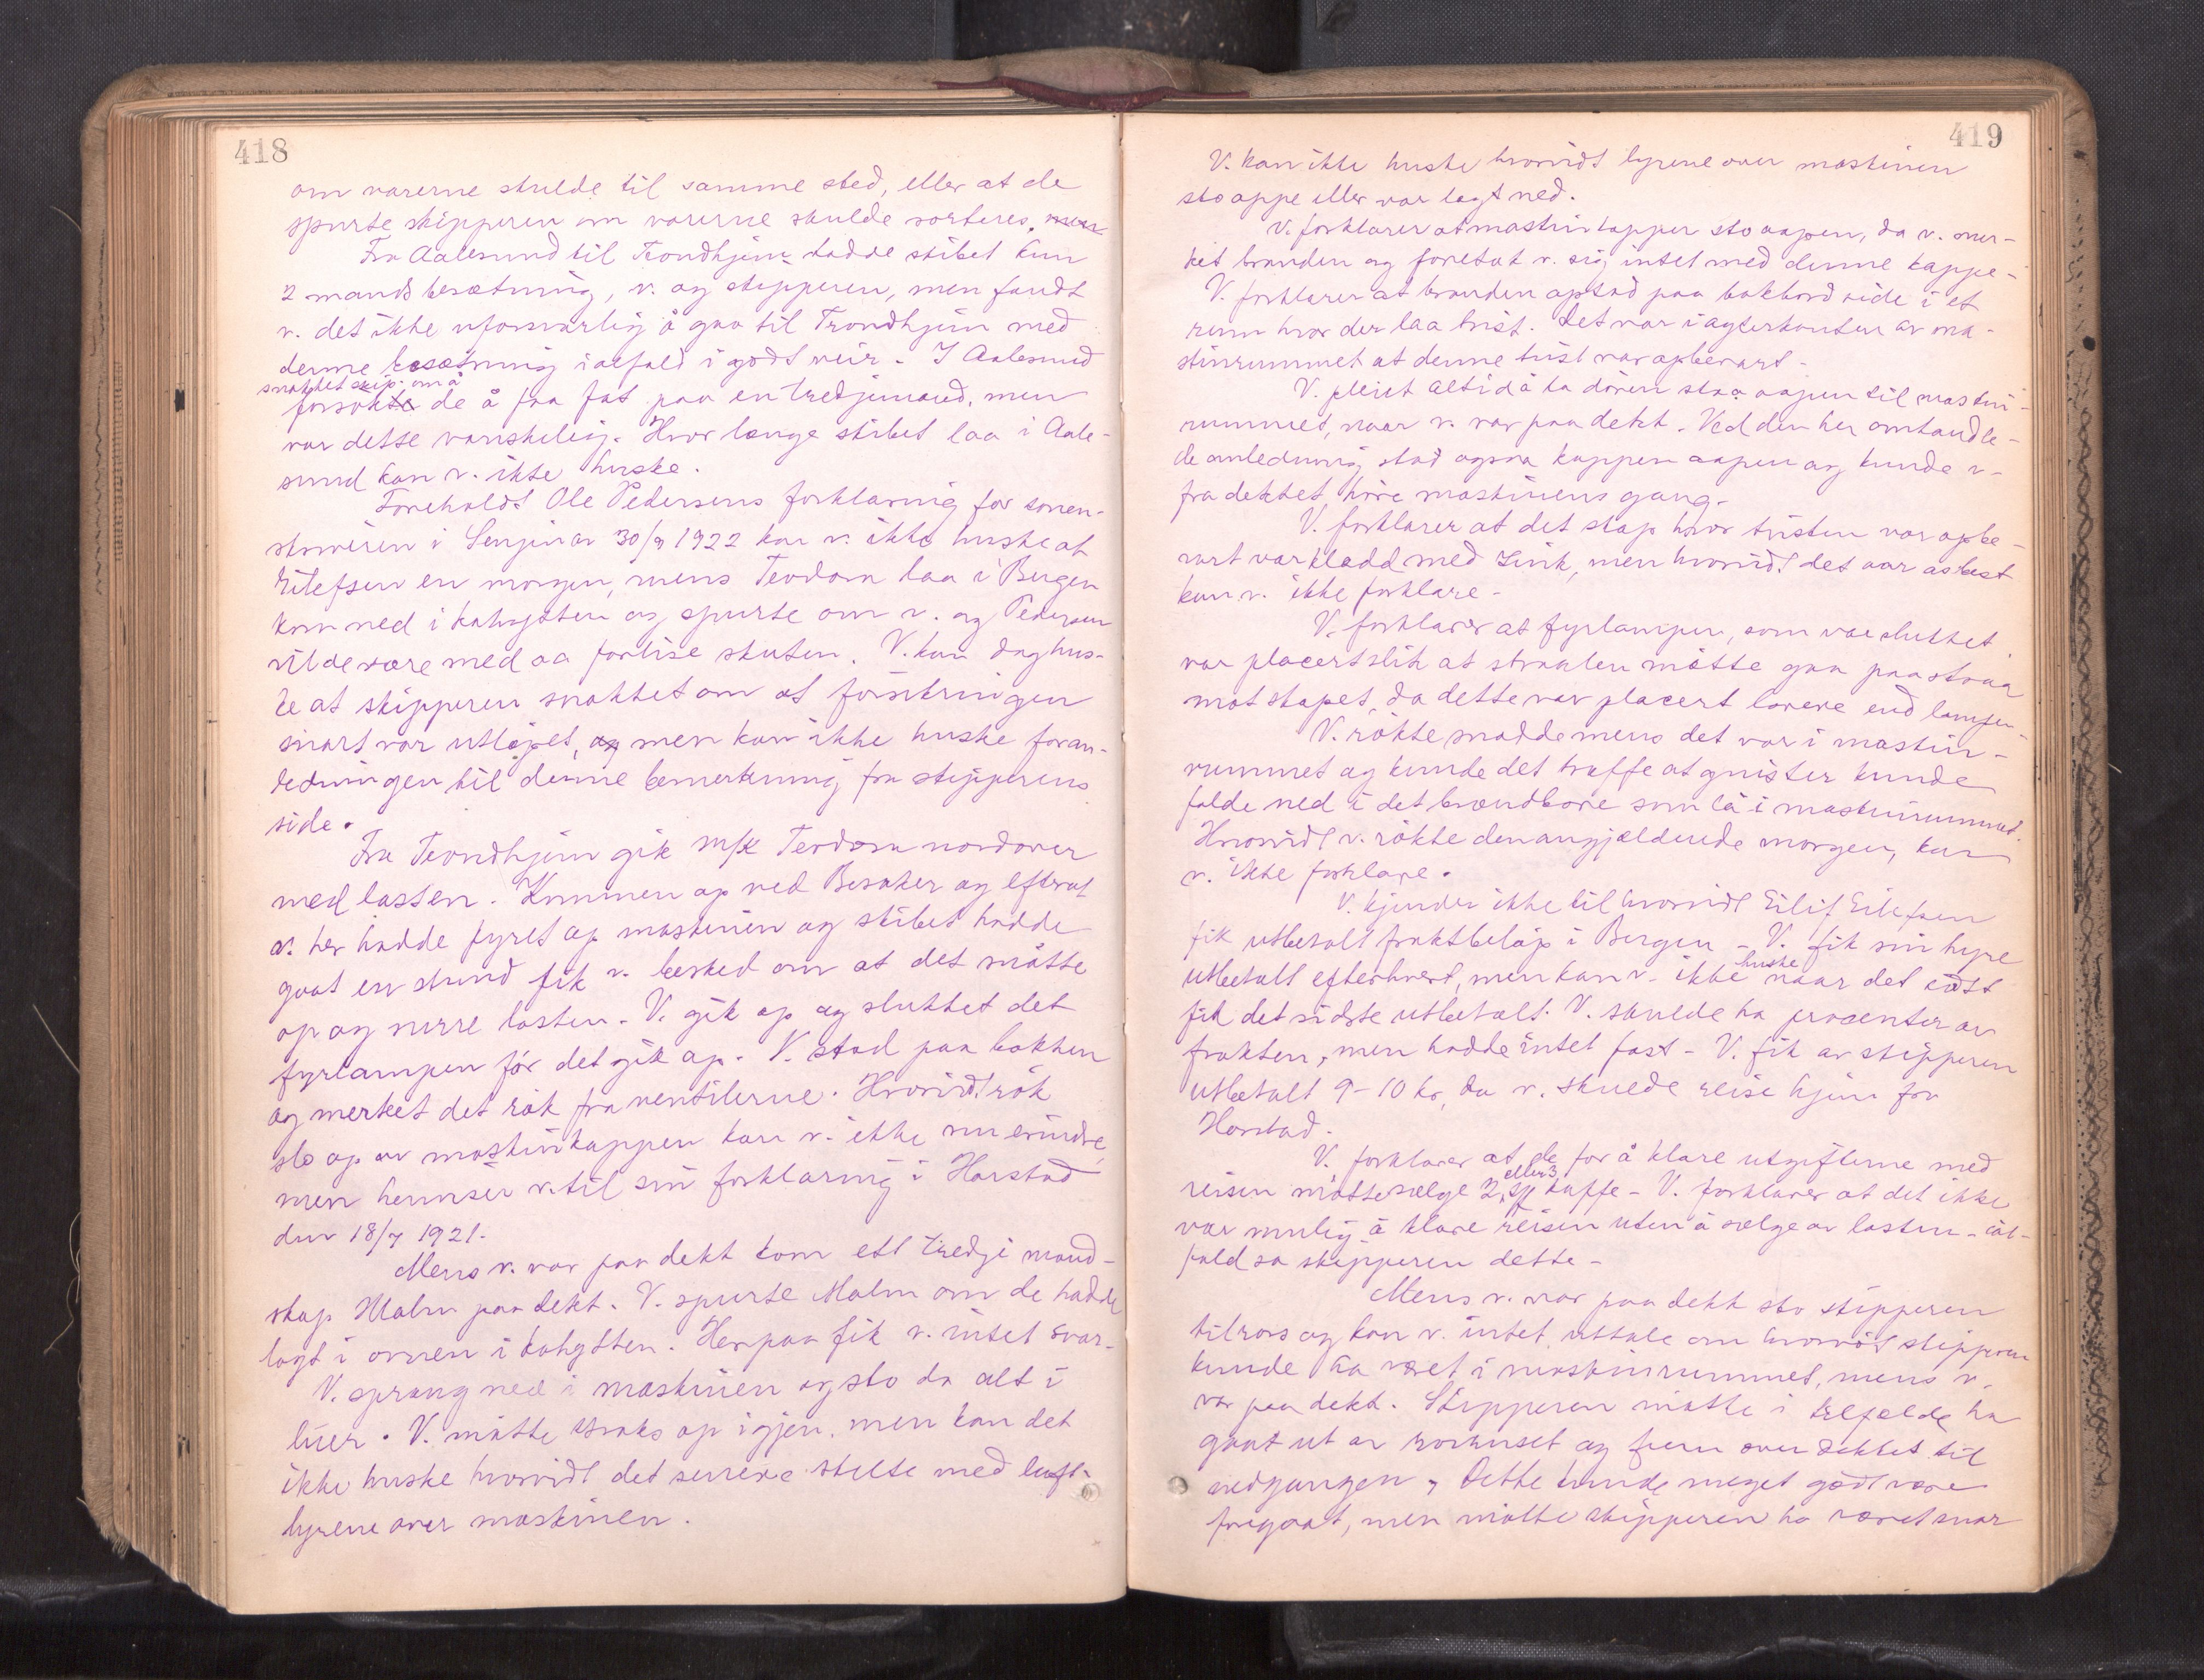 418
om varerne skulde til samme sted, eller at de
spurte skipperen om varerne skulde sorteres. men
Fra Aalesund til Trondhjem hadde skibet kun
2 mands besætning, v. og skipperen, men fandt
v. det ikke uforsvarlig å gaa til Trondhjem med
denne besætning ialfald i godt veir. I Aalesund
snakket skip. om å
forsøkte de å faa fat paa en tredjemand, men
var dette vanskelig. Hvor længe skibet laa i Aale-
sund kan v. ikke huske.
Foreholdt Ole Pedersens forklaring for lens-
i av 30/9 1922 kan v. ikke huske at
Eilefsen en morgen, mens Teodora laa i Bergen
kom ned i kahytten og spurte om v. og Pedersen
vilde være med aa forlise skuten. V. kan dog hus-
ke at skipperen snakket om at forsikringen
snart var utløpet, og men kan ikke huske foran-
ledningen til denne bemerkning fra skipperens
side.
Fra Trondhjem gik m/k Teodora nordover
med lasten. Kommen op ved Besaker og efterat
v. her hadde fyret op maskinen og skibet hadde
gaat en stund fik v. besked om at det måtte
op og surre lasten. V. gik op og slukket det
fyrlampen før det gik op. V. stod paa bakken
og merket det røk fra ventilerne. Hvorvidt røk
slo op av maskinkappen kan v. ikke nu erindre,
men henviser v. til sin forklaring i Harstad
den 18/7 1921.
Mens v. var paa dekk kom ett tredje mand-
skap Malm paa dekk. V. spurte Malm om de hadde
lagt i ovnen i kahytten. Herpaa fik v. intet svar.
V. sprang ned i maskinen og sto da alt i
luer. V. måtte straks op igjen, men kan det
ikke huske hvorvidt det senere stelte med luft-
lyrene over maskinen.
419
V. kan ikke huske hvorvidt lyrene over maskinen
sto oppe eller var lagt ned.
V. forklarer at maskinkappen sto aapen, da v. mer-
ket branden og foretok v. sig intet med denne kappe.
V. forklarer at branden opstod paa bakbord side i et
rum hvor der laa tvist. Det var i agterkanten av ma-
skinrummet at denne tvist var opbevart.
V. pleiet altid å ha døren staa aapen til maskin-
rummet, naar v. var paa dekk. Ved den her omhandle-
de anledning stod ogsaa kappen aapen og kunde v.
fra dekket høre maskinens gang.
V. forklarer at det skap hvor tvisten var opbe-
vart var kledd med zink, men hvorvidt det var asbest
kan v. ikke forklare.
V. forklarer at fyrlampen, som var slukket
var placert slik at straalen måtte gaa paa skraa
mot skapet, da dette var placert lavere end lampen.
V. røkte snadde mens det var i maskin-
rummet og kunde det træffe at gnister kunde
falde ned i det brændbare som lå i maskinrummet.
Hvorvidt v. røkte den angjældende morgen, kan
v. ikke forklare.
V. kjender ikke til hvorvidt Eilif Eilefsen
fik utbetalt fraktbeløp i Bergen. V. fik sin hyre
huske
utbetalt efterhvert, men kan v. ikke naar det sidst
fik det sidste utbetalt. V. skulde ha procenter av
frakten, men hadde intet fast. V. fik av skipperen
utbetalt 9-10 kr, da v. skulde reise hjem fra
Harstad.
V. forklarer at de for å klare utgifterne med
eller 3
reisen måtte sælge 2 sk kaffe. V. forklarer at det ikke
var mulig å klare reisen uten å sælge av lasten, ial-
fald sa skipperen dette.
Mens v. var paa dekk sto skipperen
tilrors og kan v. intet uttale om hvorvidt skipperen
kunde ha været i maskinrummet, mens v.
var paa dekk. Skipperen måtte i tilfælde ha
gaat ut av rorhuset og frem over dekket til
nedgangen. Dette kunde meget godt være
foregaat, men måtte skipperen ha været snar